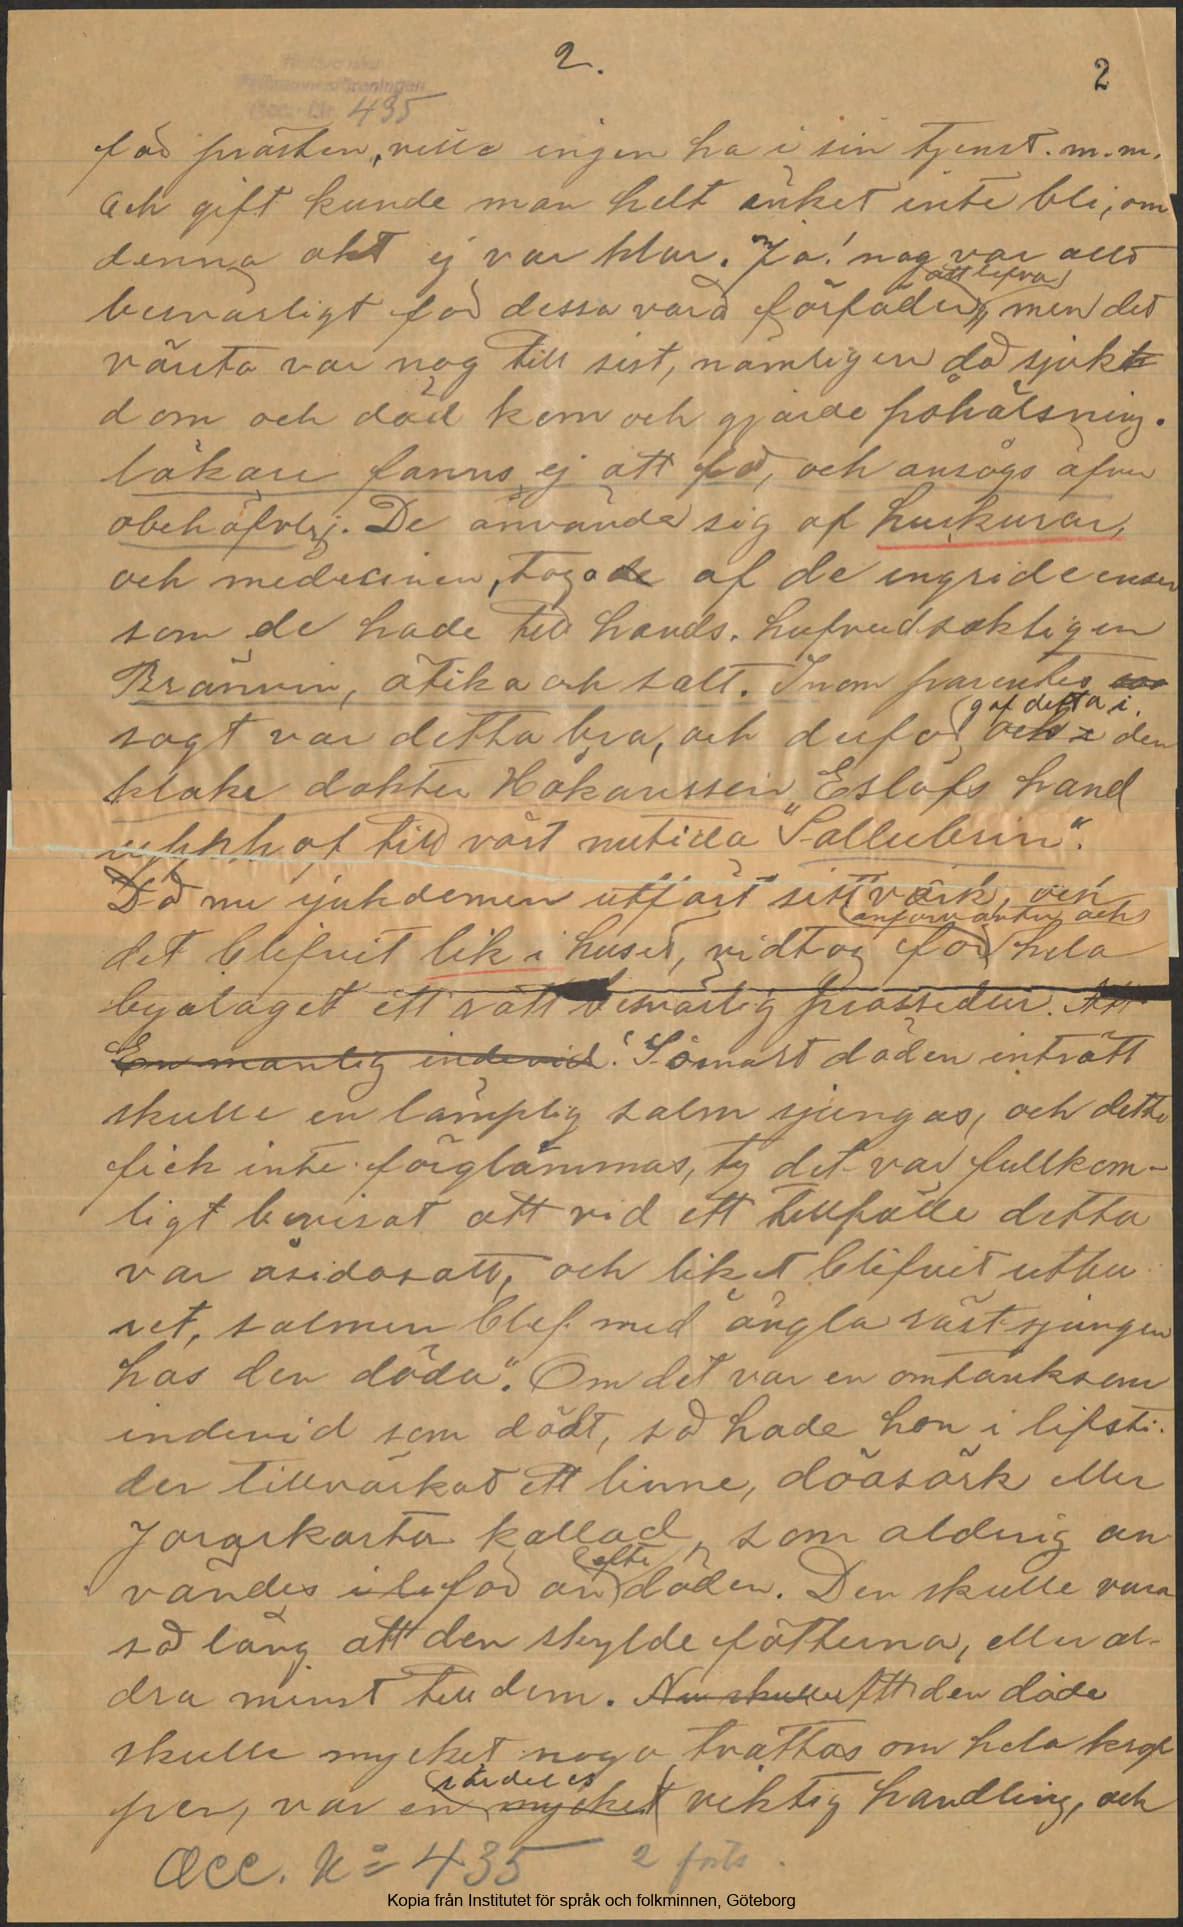 2.
2
435
för prästen, ville ingen ha i sin tjenst. m.m.
Och gift kunde man helt enket inte bli, om
denna akt ej var klar. Ja! nog var allt
att lefva
besvärligt för dessa våra förfäder, men det
värsta var nog till sist, nämligen då sjuk
dom och död kom och gjärde påhälsning.
läkare fanns ej att få, och ansågs äfven
obehöfvlig. De använde sig af huskurar,
och medicinen, togo de af de ingridienser
som de hade till hands. hufvudsakligen
Brännvin, ätika och salt. Inom parentes
gaf detta i.
sagt var detta bra, och derför och i den
kloke doktor Håkanssein Eslöfs hand
upphof till vårt nutida "Sallubrin".
Då nu sjukdomen utfört sitt värk, och
anförvanter och
det blifvit lik i huset, vidtog för hela
byalaget ett rätt besvärlig prossedur. Att
En manlig individ! Såsnart döden inträtt
skulle en lämplig salm sjungas, och detta
fick inte förglämmas, ty det var fullkom-
ligt bevisat att vid ett tillfälle detta
var åsidosatt, och liket blifvit utbu
ret, salmen blef med ängla räst sjungen
hos den döda". Om det var en omtänksam
individ som dödt, så hade hon i lifsti-
der tillvärkat ett linne, döasärk eller
Jorarkarta kallad, som aldrig an
efter
vändes för än döden. Den skulle vara
så lång att den skylde fötterna, eller al-
dra minst till dem. Nu skulle Att den döde
skulle mycket noga tvättas om hela krop
särdeles
pen, var en mycket viktig handling, och
Acc. No 435 2 forts.
Kopia från Institutet för språk och folkminnen, Göteborg